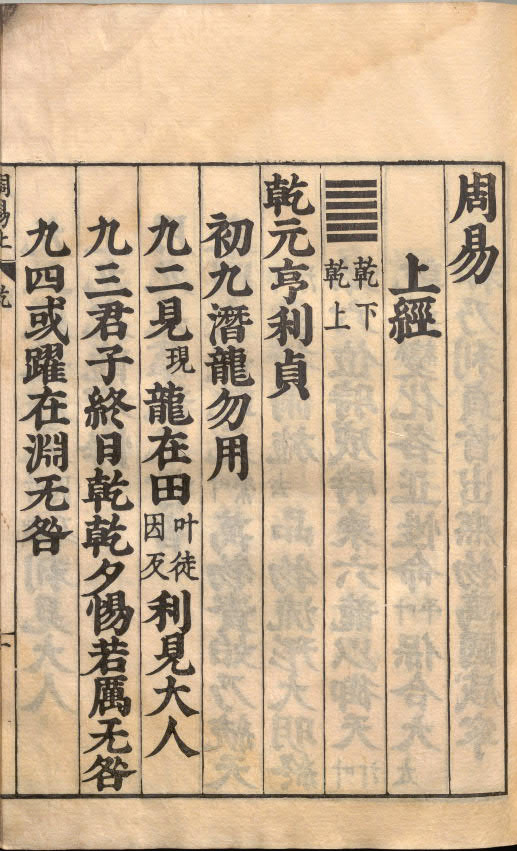 周易
上經
乾下
乾上
乾元亨利貞
初九潛龍勿用
九二見現龍在田叶徒因反利見大人
九三君子終日乾乾夕惕若厲无咎
九四或躍在淵无咎
周易上 乾